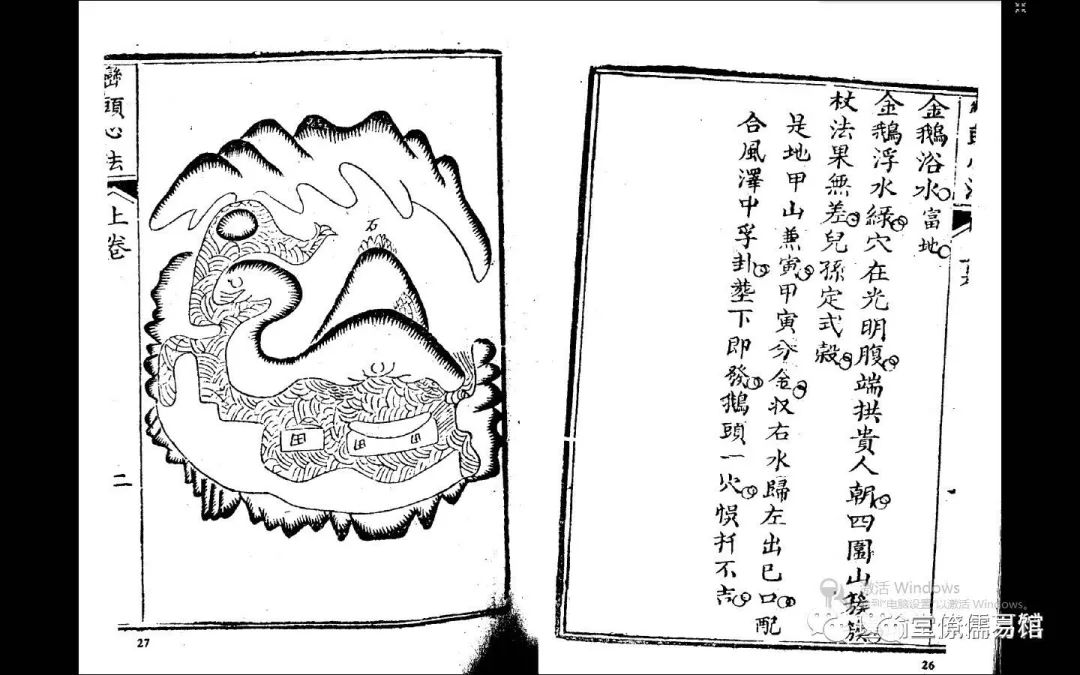 金鵝浴水 富地
金鵝浮水綠穴在光明腹端拱貴人朝四圍山簇簇
杖法果無差兒孫定式穀
是地甲山兼寅甲寅分金収右水歸左出巳口配
合風澤中孚卦塟下即發鵝頭一穴悞扦不吉
26
巒頭心法 上卷 二
石
田 田 田
27
激活 Windows
到"电脑设置"以激活 Windows。
儒易馆